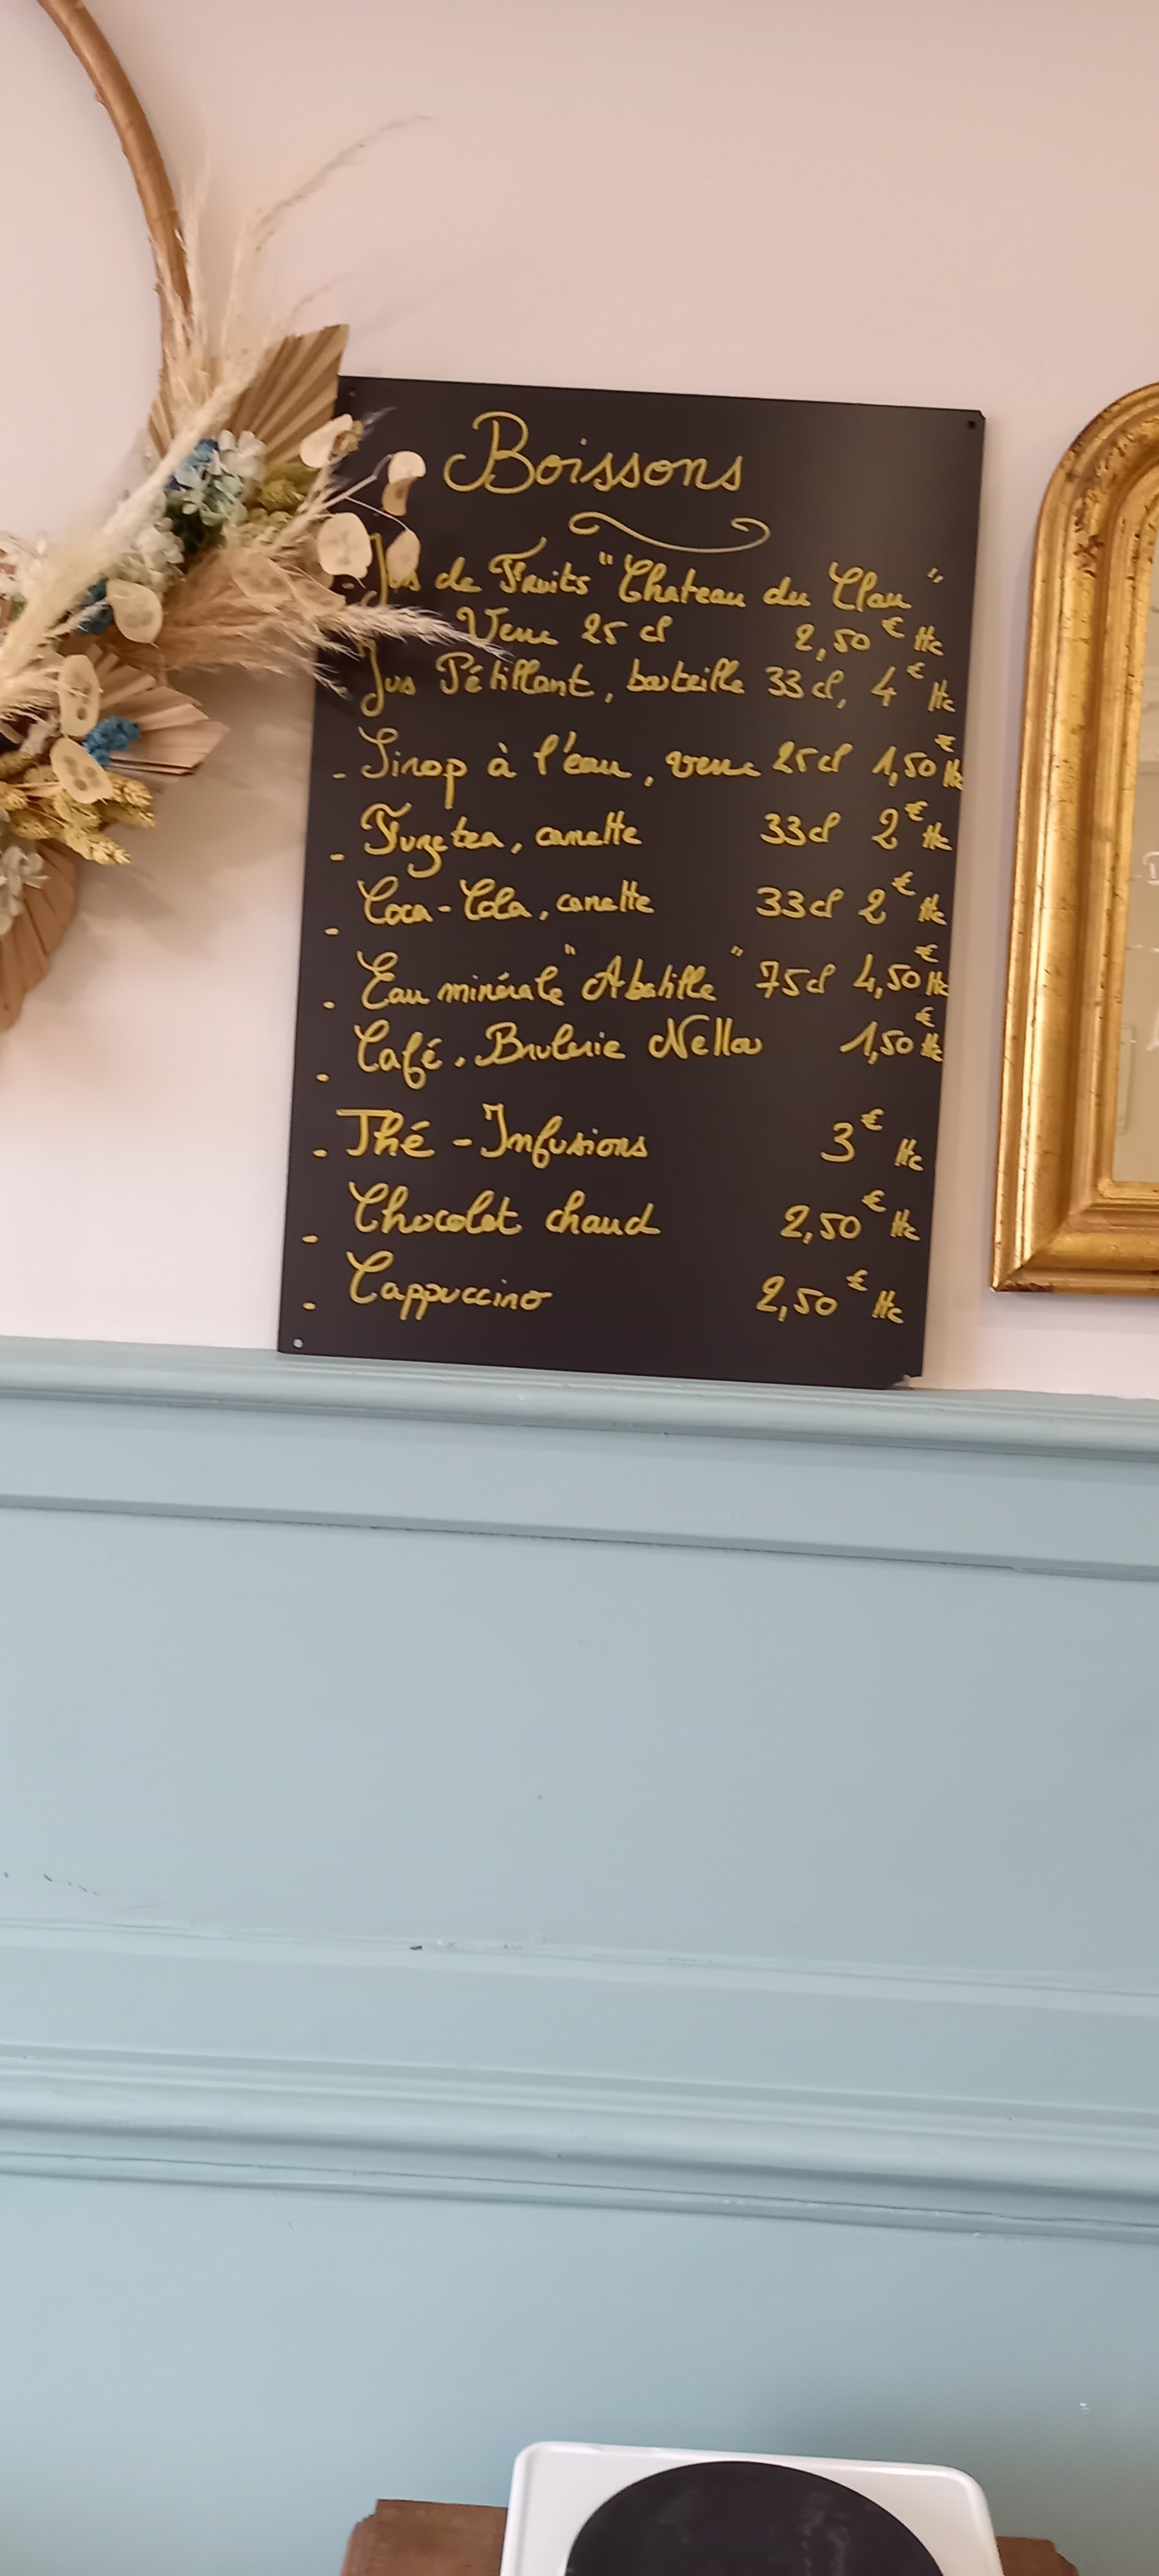 Boissons
- Jus de Fruits "Chateau du Clau"
Verre 25 cl 2,50€ ttc
Jus Pétillant, bouteille 33 cl, 4€ ttc
- Sirop à l'eau, verre 25 cl 1,50€ ttc
- Fuzetea, canette 33 cl 2€ ttc
- Coca-Cola, canette 33 cl 2€ ttc
- Eau minérale "Abatille" 75 cl 4,50€ ttc
- Café, Brulerie 1,50€ ttc
- Thé - Infusions 3€ ttc
- Chocolat chaud 2,50€ ttc
- Cappuccino 2,50€ ttc